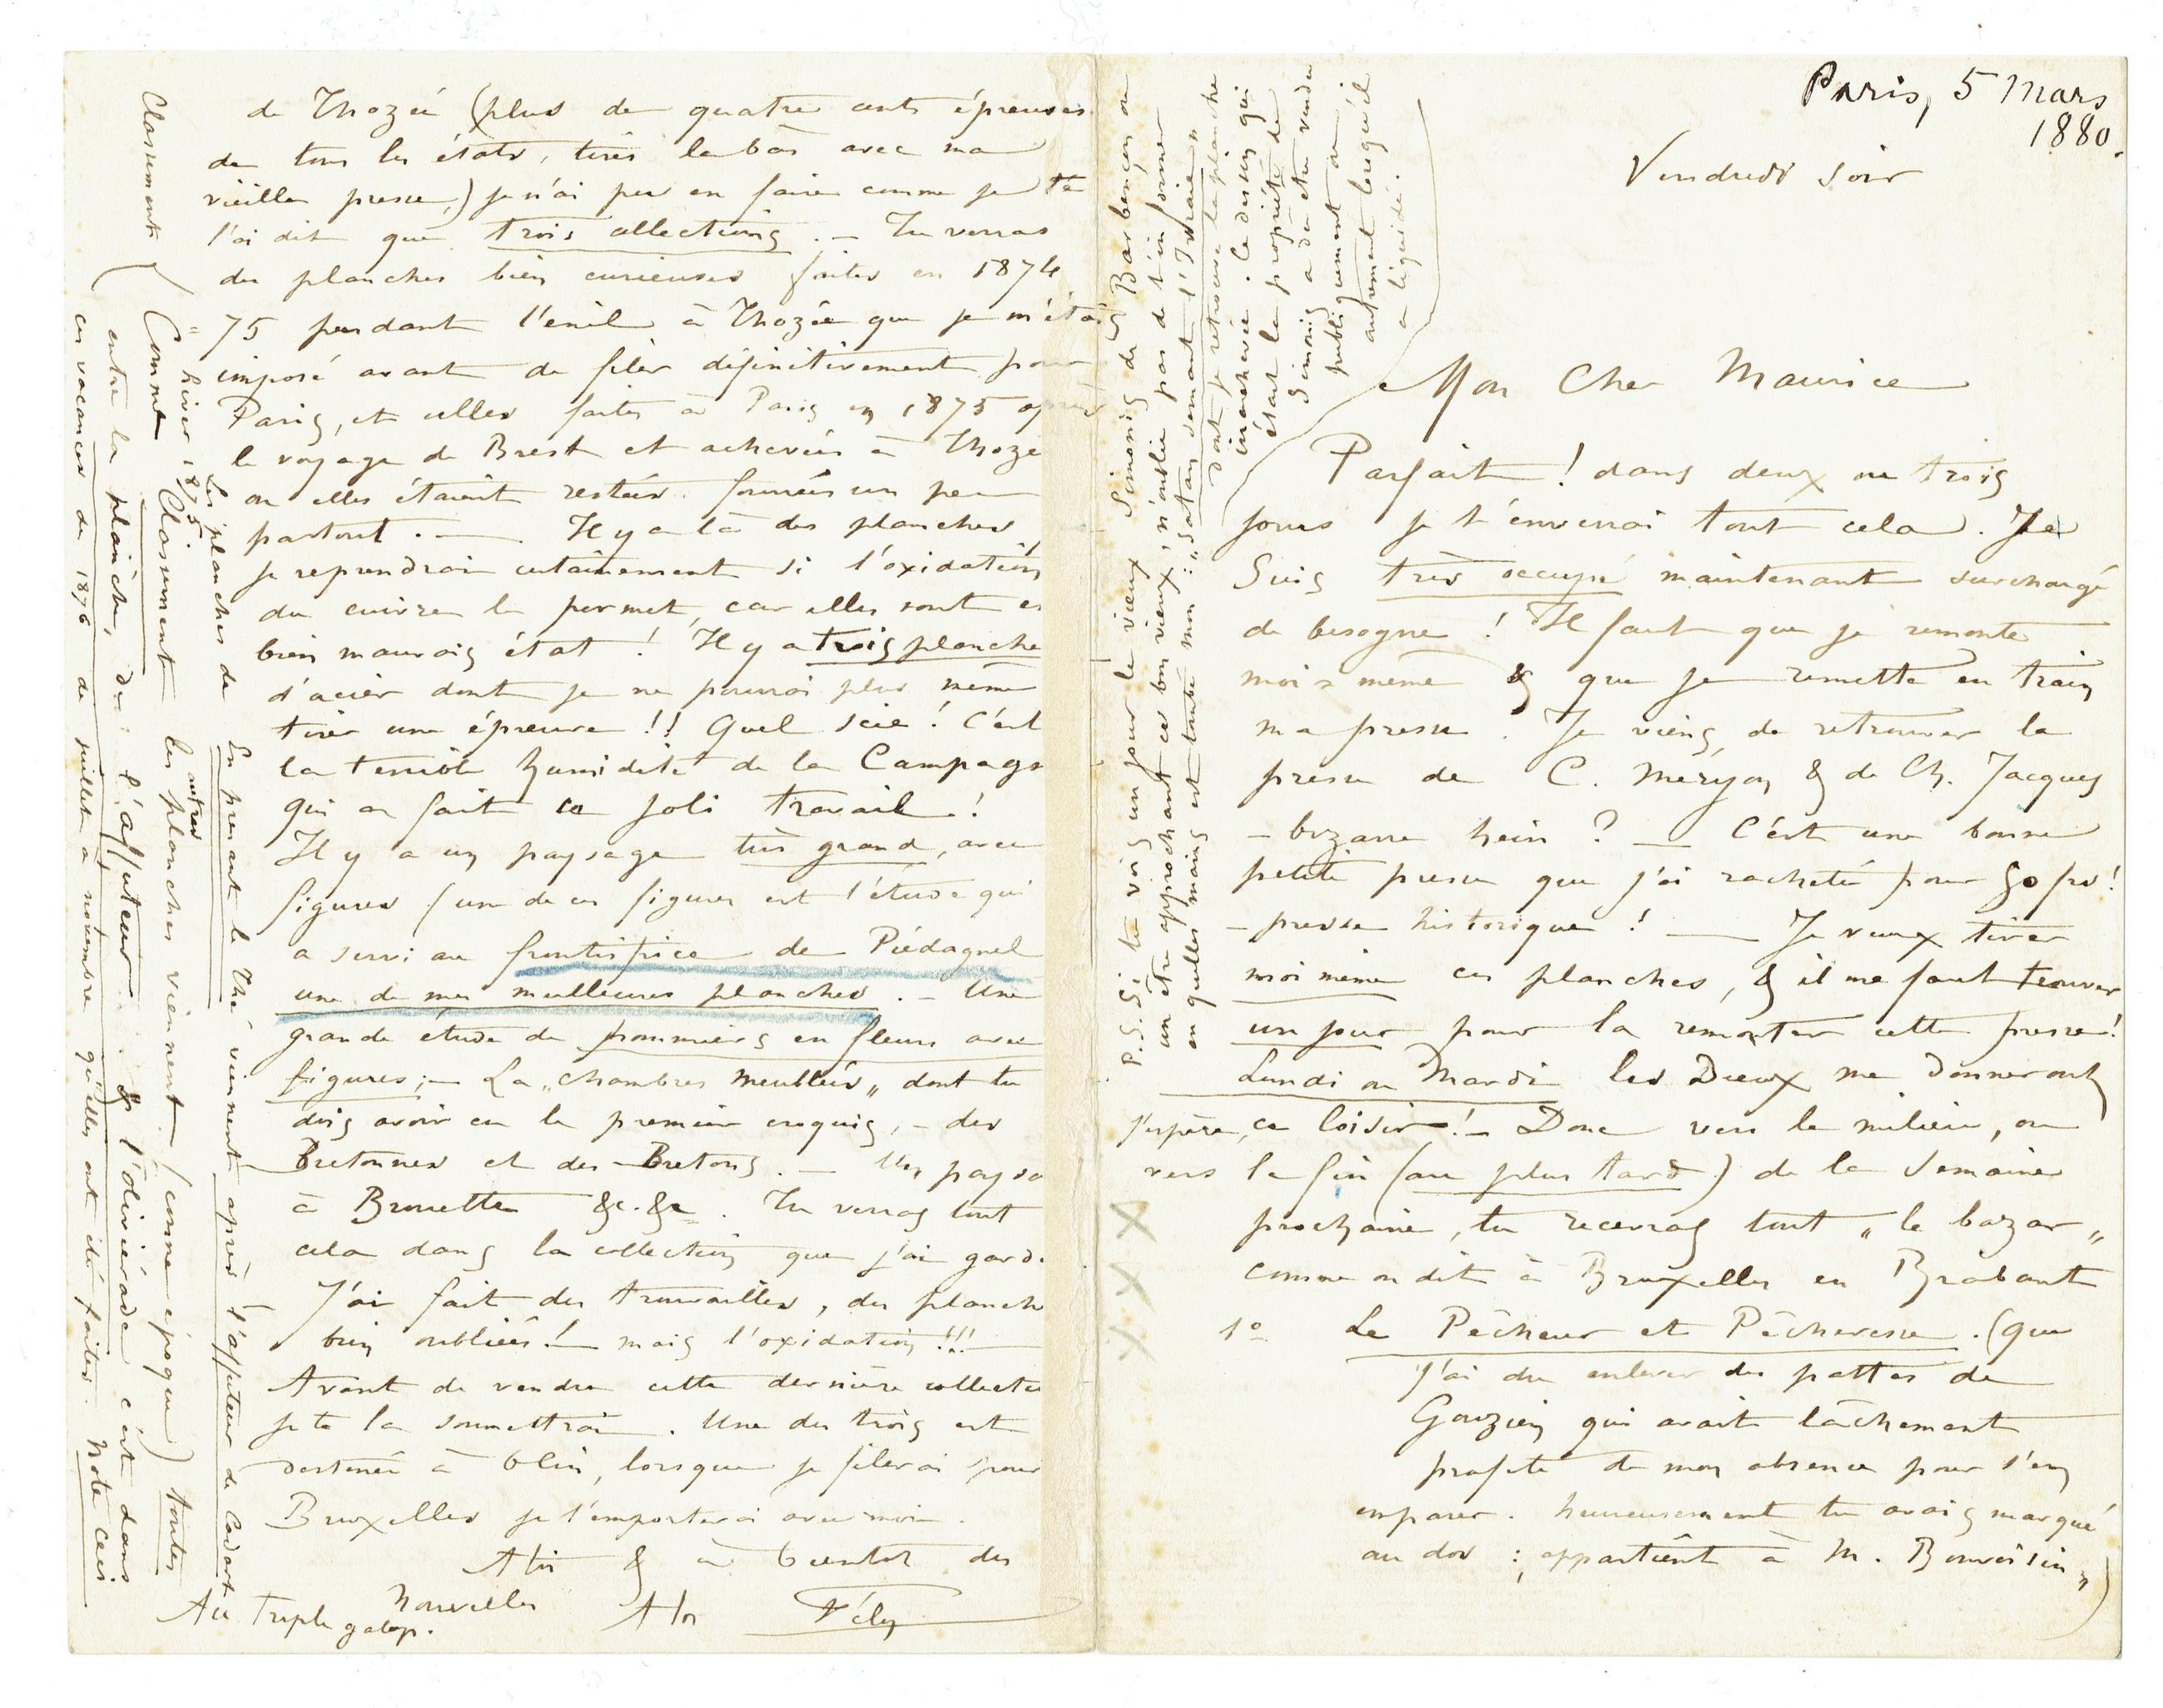 Paris, 5 Mars
1880.
Vendredi soir
Mon Cher Maurice
Parfait ! dans deux ou trois
jours je t'enverrai tout cela. Je
suis très occupé maintenant surchargé
de besogne ! Il faut que je remonte
moi même & que je remette en train
ma presse. Je viens de retrouver la
presse de C. Méryon & de Ch. Jacques
– bizarre hein ? — C'est une bonne
petite presse que j'ai racheté pour 50 frs !
– presse historique ! — Je veux tirer
moi même ces planches, & il me faut trouver
un jour pour la remonter cette presse !
Lundi ou Mardi les Dieux me donneront
j'espère, ce loisir ! – Donc vers le milieu, ou
vers la fin (au plus tard) de la semaine
prochaine, tu recevras tout „ le bazar „
comme on dit à Bruxelles en Brabant
1º Le Pêcheur et Pêcheresse. (que
j'ai du enlever des pattes de
Gouzien qui avait lâchement
profité de mon absence pour s'en
emparer. heureusement tu avais marqué
au dos : „ appartient à M. Bonvoisin „)
P.S. Si tu vois un jour le vieux Simonis de Barbençon ou
un être approchant ce bon vieux, n'oublie pas de t'informer
en quelles mains est tombé mon : „ Satan semant l'Ivraie „
dont je retrouve la planche
inachevée. Ce dessin qui
était la propriété de
Simonis a du être vendu
publiquement ou
autrement lorsqu'il
a liquidé.
de Thozée (plus de quatre cents épreuves
de tous les états, tirés là bas avec ma
vieille presse,) je n'ai pu en faire comme je te
l'ai dit que trois collections. – Tu verras
des planches bien curieuses faites en 1874
= 75 pendant l'exil à Thozée que je m'étais
imposé avant de filer définitivement pour
Paris, et celles faites à Paris en 1875 après
le voyage de Brest et achevées à Thozé
ou elles étaient restées fourrées un peu
partout. — Il y a là des planches
je reprendrai certainement si l'oxidation
du cuivre le permet, car elles sont en
bien mauvais état ! Il y a trois planche
d'acier dont je ne pourrai plus même
tirer une épreuve !! Quel scie ! C'est
la terrible humidité de la Campagn
qui a fait ce joli travail !
Il y a un paysage très grand, avec
figures (une de ces figures est l'étude qui
a servi au frontispice de Piédagnel
une de mes meilleures planches. – Une
grande étude de pommiers en fleurs avec
figures ; – La „ chambres meublées „ dont tu
dois avoir eu le premier croquis, – des
Bretonnes et des Bretons. – Un paysa
à Brouette &c. &c. Tu verras tout
cela dans la collection que j'ai gardé
J'ai fait des trouvailles, des planch
bien oubliées ! – mais l'oxidation !!!
Avant de vendre cette dernière collecti
je te la soumettrai. Une des trois est
destinée à Olin, lorsque je filerai pour
Bruxelles je l'emporterai avec moi.
A toi & à bientot des
nouvelles
Au triple galop.
A toi Fély
Les planches de
hiver 1875.
En prenant le Thé viennent après l'affuteur de Cadart
Classement
(Comme Classement les autres planches viennent (comme époque) toutes
entre la planche, de l'affuteur & l'oliviérade c'est dans
ces vacances de 1876 de juillet à novembre qu'elles ont été faites. Note ceci